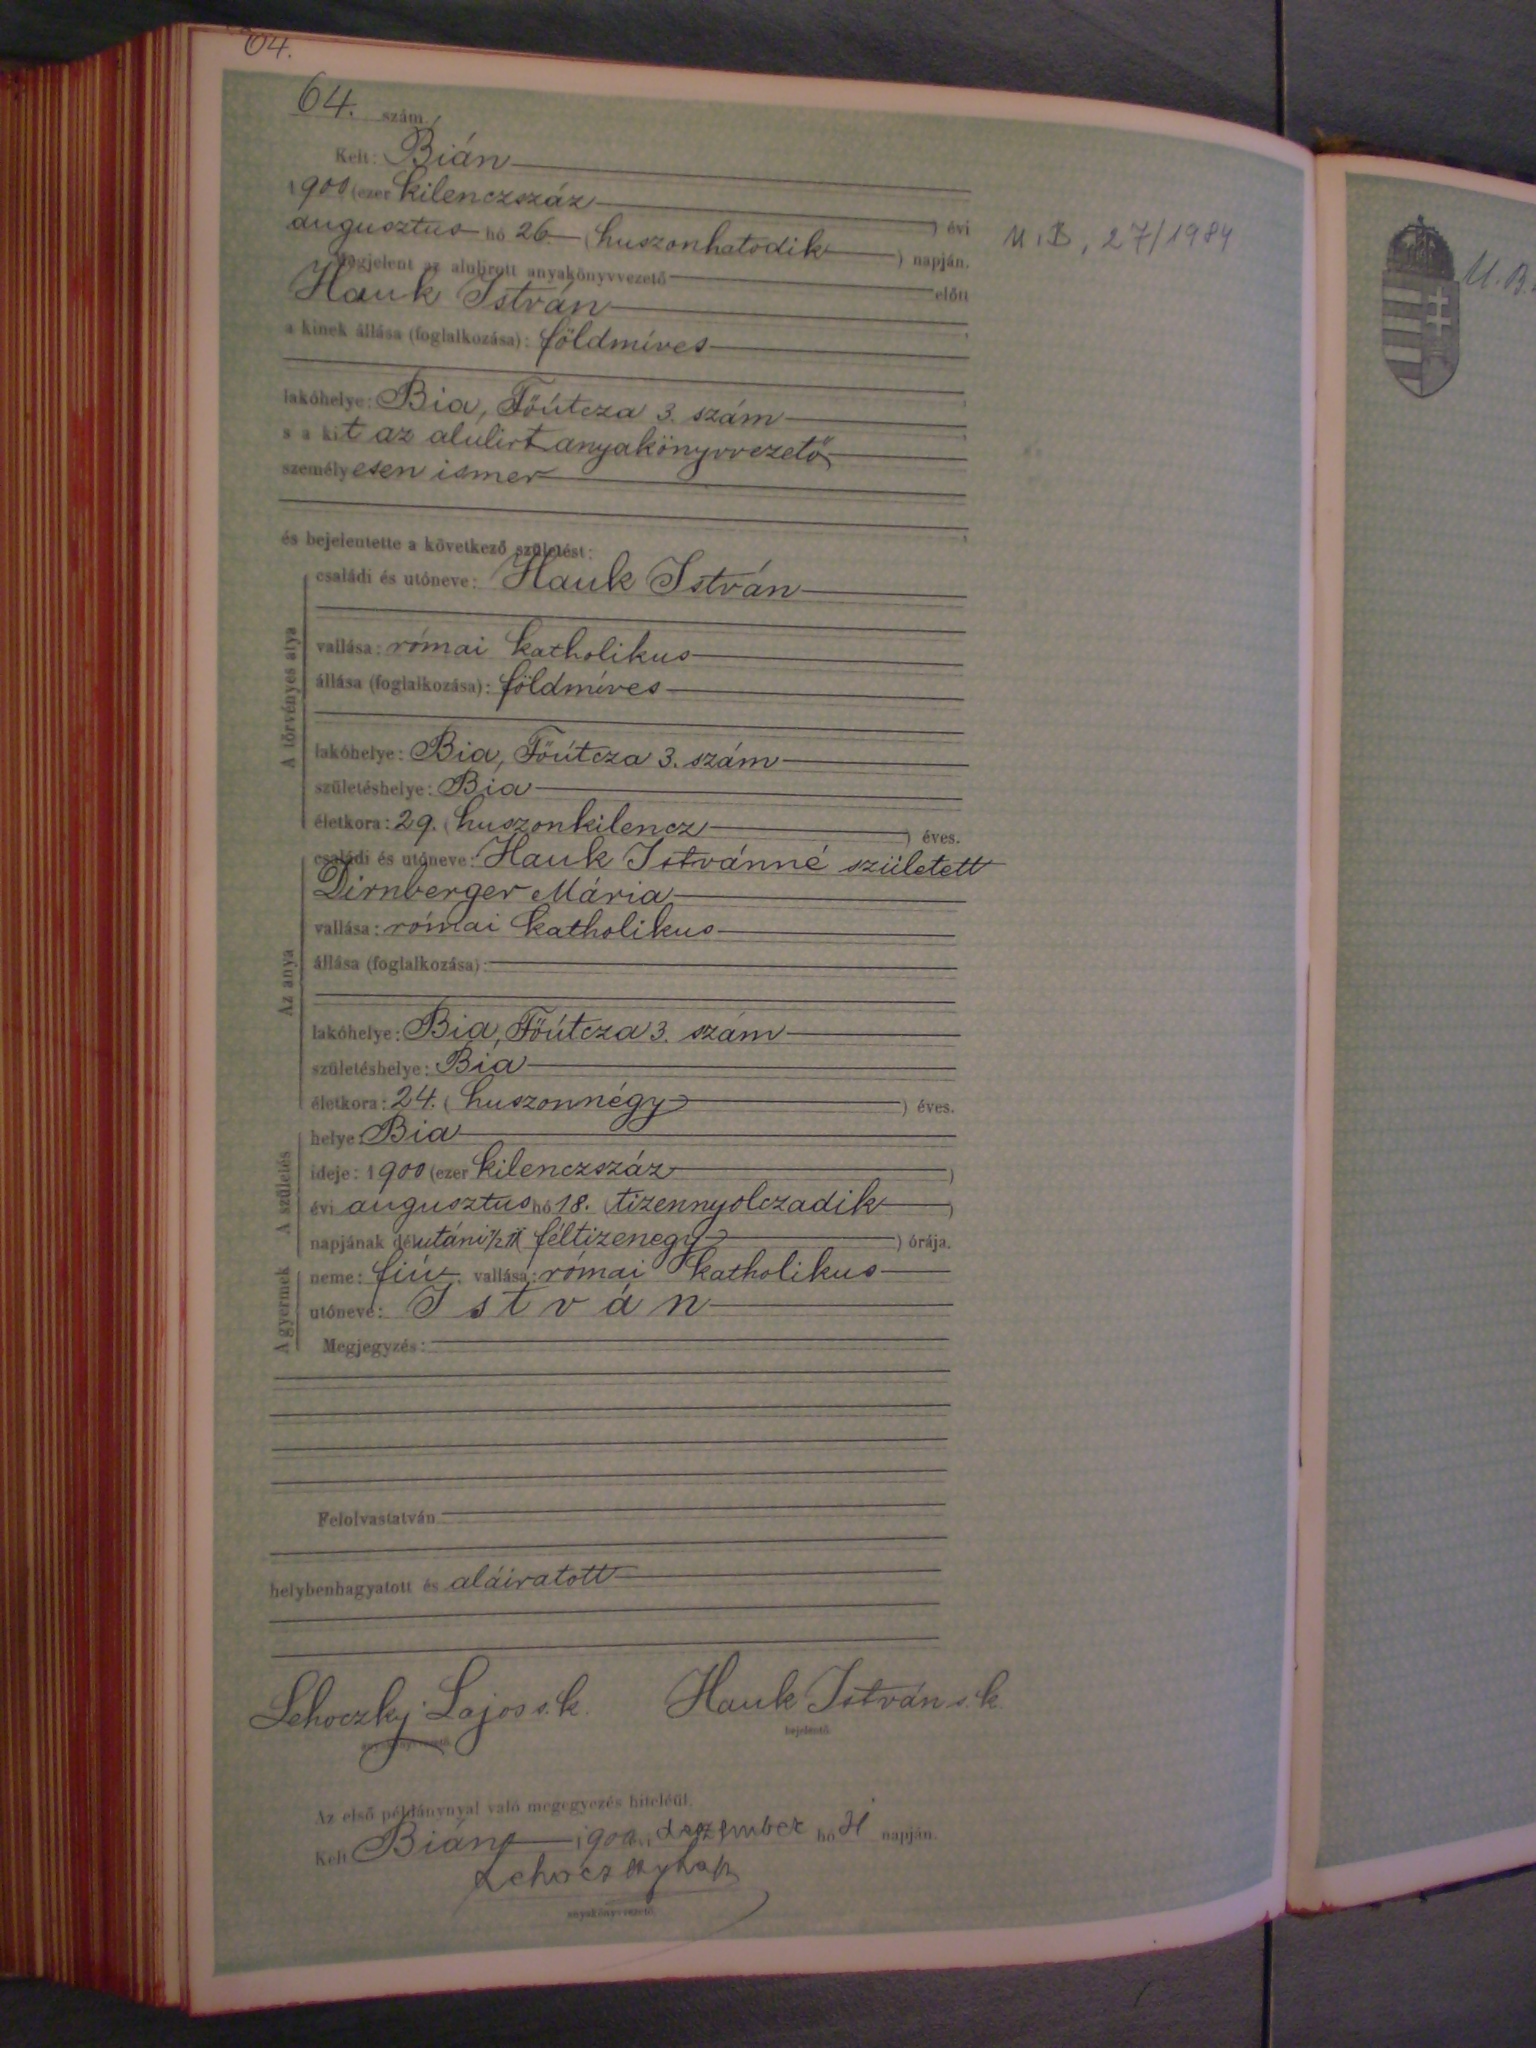 64.
64. szám
Kelt: Bián
1900 (ezer kilenczszáz ) évi
augusztus hó 26 (huszonhatodik ) napján.
Megjelent az alulirott anyakönyvvezető előtt
Hauk István
a kinek állása (foglalkozása): földmíves
lakóhelye: Bia, Főútcza 3. szám
s a kit az alulirt anyakönyvvezető
személyesen ismer
és bejelentette a következő születést:
A törvényes atya
családi és utóneve: Hauk István
vallása: római katholikus
állása (foglalkozása): földmíves
lakóhelye: Bia, Főútcza 3. szám
születéshelye: Bia
életkora: 29. (huszonkilencz ) éves.
Az anya
családi és utóneve: Hauk Istvánné született
Dirnberger Mária
vallása: római katholikus
állása (foglalkozása):
lakóhelye: Bia, Főútcza 3. szám
születéshelye: Bia
életkora: 24. (huszonnégy ) éves.
A születés
helye: Bia
ideje: 1900 (ezer kilenczszáz )
évi augusztus hó 18. (tizennyolczadik )
napjának délutáni ½11 (féltizenegy ) órája.
A gyermek
neme: fiú, vallása: római katholikus
utóneve: István
Megjegyzés:
Felolvastatván
helybenhagyatott és aláiratott
Lehoczky Lajos s. k. Hauk István s. k.
anyakönyvvezető bejelentő
Az első példánynyal való megegyezés hiteléül.
Kelt Bián 1900 deczember hó napján.
anyakönyvvezető
U. B, 27/1984
U. B.